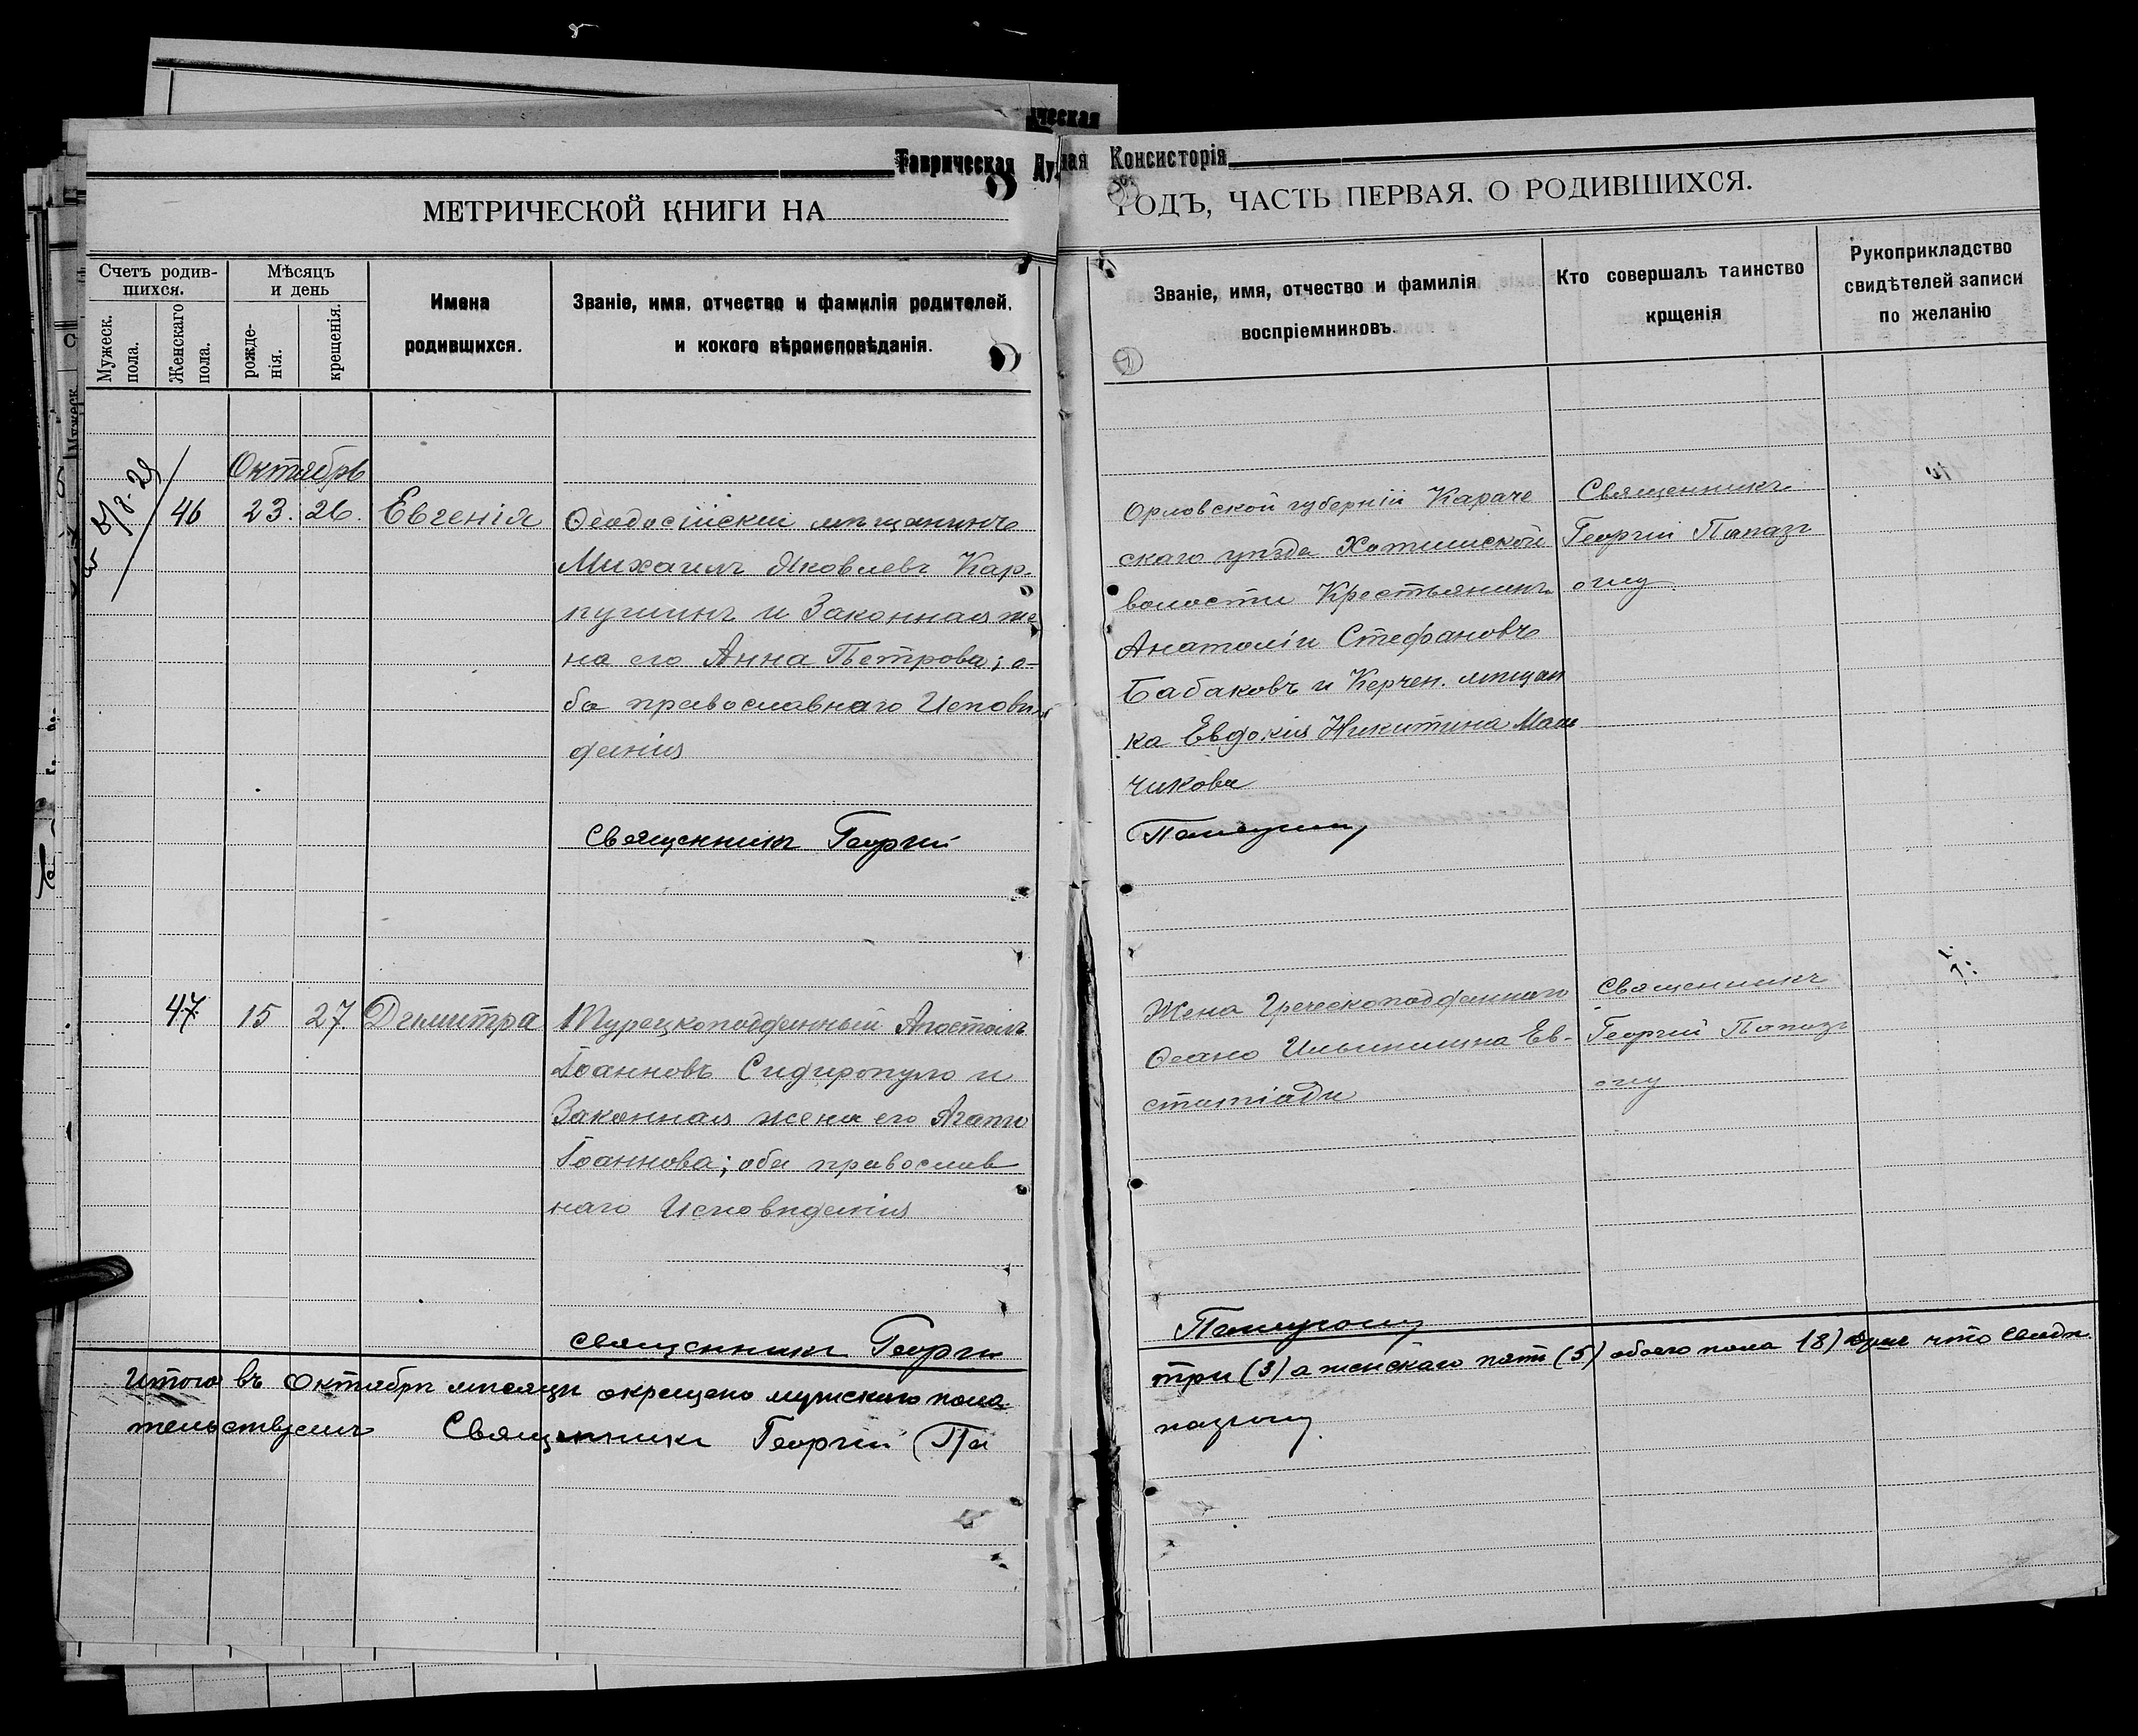 ческая
Таврическая Ду ная Консисторія
МЕТРИЧЕСКОЙ КНИГИ НА
ГОДЪ, ЧАСТЬ ПЕРВАЯ. О РОДИВШИХСЯ.
Счетъ родив-
шихся.
Мужеск.
пола.
Женскаго
пола.
Мѣсяцъ
и день
рожде-
нія.
крещенія.
Имена
родившихся.
Званіе, имя, отчество и фамилія родителей,
и кокого вѣроисповѣданія.
Званіе, имя, отчество и фамилія
воспріемниковъ.
Кто совершалъ таинство
крщенія
Рукоприкладство
свидѣтелей записи
по желанію
Октябрь
46
23. 26.
Евгенія
Ѳеодосійскій мѣщанинъ
Михаилъ Яковлевъ Кар-
пушинъ и Законная же
на его Анна Петрова; о-
ба православнаго Исповѣ
данія
Священникъ Георгій
Орловской губерніи Караче
скаго уѣзда Хотимской
волости Крестьянинъ
Анатолій Стефановъ
Бабаковъ и Керчен. мѣщан
ка Евдокія Никитина Маш
чикова
Священникъ
Георгій Папаз
оглу
47
15 27
Димитра
Турецкоподданный Апостолъ
Іоанновъ Сидиропуло и
Законная жена его Агапи
Іоаннова; оба православ
наго Исповѣданія
Священникъ Георгій
Жена Греческоподданнаго
Ѳеано Ильинишна Ев-
статіади
Священникъ
Георгій Папаз
оглу
Итого въ Октябрѣ мѣсяцѣ окрещено мужского пола
три (3) а женскаго пять (5) обоего пола (8) душъ что свидѣ
тельствуемъ Священникъ Георгій Па
пазоглу.